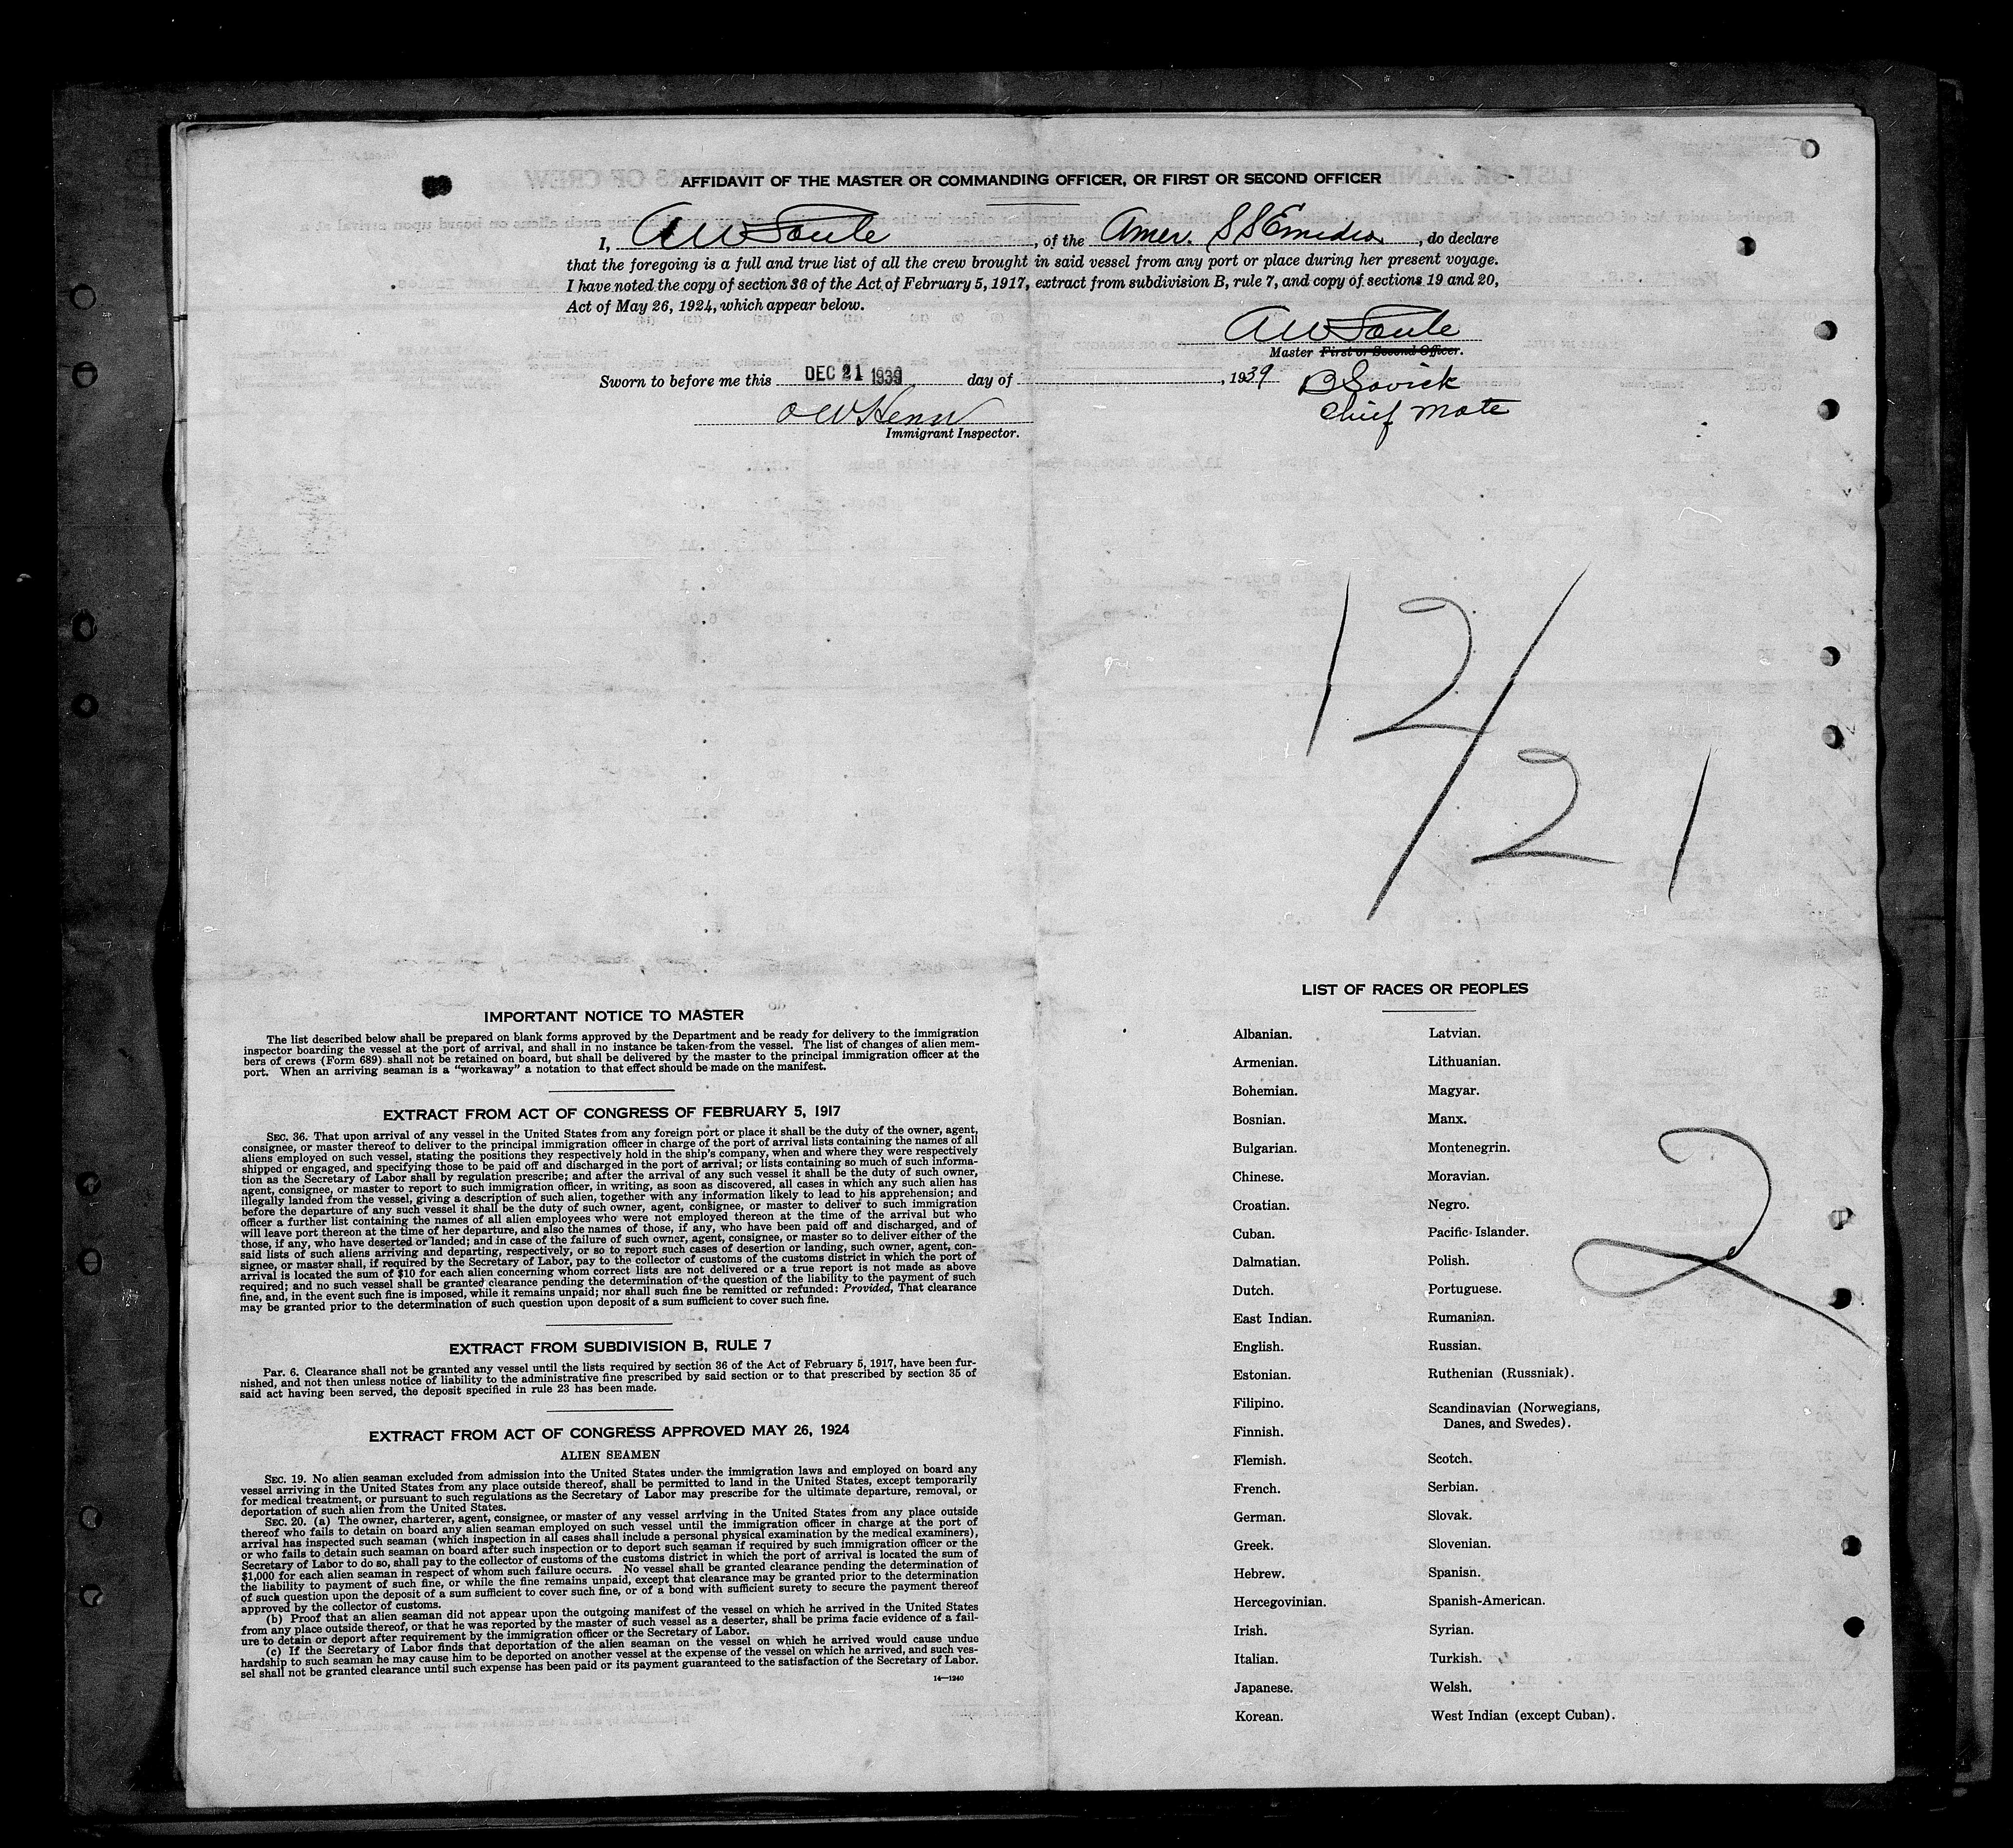 AFFIDAVIT OF THE MASTER OR COMMANDING OFFICER, OR FIRST OR SECOND OFFICER
I, A W Soule, of the Amer. S S Emedio, do declare
that the foregoing is a full and true list of all the crew brought in said vessel from any port or place during her present voyage.
I have noted the copy of section 36 of the Act of February 5, 1917, extract from subdivision B, rule 7, and copy of sections 19 and 20,
Act of May 26, 1924, which appear below.
A W Soule
Master First or Second Officer.
Sworn to before me this DEC 21 1939 day of , 1939
B Sovick
Chief Mate
Immigrant Inspector.
12/21
IMPORTANT NOTICE TO MASTER
The list described below shall be prepared on blank forms approved by the Department and be ready for delivery to the immigration
inspector boarding the vessel at the port of arrival, and shall in no instance be taken from the vessel. The list of changes of alien mem-
bers of crews (Form 689) shall not be retained on board, but shall be delivered by the master to the principal immigration officer at the
port. When an arriving seaman is a "workaway" a notation to that effect should be made on the manifest.
EXTRACT FROM ACT OF CONGRESS OF FEBRUARY 5, 1917
SEC. 36. That upon arrival of any vessel in the United States from any foreign port or place it shall be the duty of the owner, agent,
consignee, or master thereof to deliver to the principal immigration officer in charge of the port of arrival lists containing the names of all
aliens employed on such vessel, stating the positions they respectively hold in the ship's company, when and where they were respectively
shipped or engaged, and specifying those to be paid off and discharged in the port of arrival; or lists containing so much of such informa-
tion as the Secretary of Labor shall by regulation prescribe; and after the arrival of any such vessel it shall be the duty of such owner,
agent, consignee, or master to report to such immigration officer, in writing, as soon as discovered, all cases in which any such alien has
illegally landed from the vessel, giving a description of such alien, together with any information likely to lead to his apprehension; and
before the departure of any such vessel it shall be the duty of such owner, agent, consignee, or master to deliver to such immigration
officer a further list containing the names of all alien employees who were not employed thereon at the time of the arrival but who
will leave port thereon at the time of her departure, and also the names of those, if any, who have been paid off and discharged, and of
those, if any, who have deserted or landed; and in case of the failure of such owner, agent, consignee, or master so to deliver either of the
said lists of such aliens arriving and departing, respectively, or so to report such cases of desertion or landing, such owner, agent, con-
signee, or master shall, if required by the Secretary of Labor, pay to the collector of customs of the customs district in which the port of
arrival is located the sum of $10 for each alien concerning whom correct lists are not delivered or a true report is not made as above
required; and no such vessel shall be granted clearance pending the determination of the question of the liability to the payment of such
fine, and, in the event such fine is imposed, while it remains unpaid; nor shall such fine be remitted or refunded: Provided, That clearance
may be granted prior to the determination of such question upon deposit of a sum sufficient to cover such fine.
EXTRACT FROM SUBDIVISION B, RULE 7
Par. 6. Clearance shall not be granted any vessel until the lists required by section 36 of the Act of February 5, 1917, have been fur-
nished, and not then unless notice of liability to the administrative fine prescribed by said section or to that prescribed by section 35 of
said act having been served, the deposit specified in rule 23 has been made.
EXTRACT FROM ACT OF CONGRESS APPROVED MAY 26, 1924
ALIEN SEAMEN
SEC. 19. No alien seaman excluded from admission into the United States under the immigration laws and employed on board any
vessel arriving in the United States from any place outside thereof, shall be permitted to land in the United States, except temporarily
for medical treatment, or pursuant to such regulations as the Secretary of Labor may prescribe for the ultimate departure, removal, or
deportation of such alien from the United States.
SEC. 20. (a) The owner, charterer, agent, consignee, or master of any vessel arriving in the United States from any place outside
thereof who fails to detain on board any alien seaman employed on such vessel until the immigration officer in charge at the port of
arrival has inspected such seaman (which inspection in all cases shall include a personal physical examination by the medical examiners),
or who fails to detain such seaman on board after such inspection or to deport such seaman if required by such immigration officer or the
Secretary of Labor to do so, shall pay to the collector of customs of the customs district in which the port of arrival is located the sum of
$1,000 for each alien seaman in respect of whom such failure occurs. No vessel shall be granted clearance pending the determination of
the liability to payment of such fine, or while the fine remains unpaid, except that clearance may be granted prior to the determination
of such question upon the deposit of a sum sufficient to cover such fine, or of a bond with sufficient surety to secure the payment thereof
approved by the collector of customs.
(b) Proof that an alien seaman did not appear upon the outgoing manifest of the vessel on which he arrived in the United States
from any place outside thereof, or that he was reported by the master of such vessel as a deserter, shall be prima facie evidence of a fail-
ure to detain or deport after requirement by the immigration officer or the Secretary of Labor.
(c) If the Secretary of Labor finds that deportation of the alien seaman on the vessel on which he arrived would cause undue
hardship to such seaman he may cause him to be deported on another vessel at the expense of the vessel on which he arrived, and such ves-
sel shall not be granted clearance until such expense has been paid or its payment guaranteed to the satisfaction of the Secretary of Labor.
14—1240
LIST OF RACES OR PEOPLES
Albanian.
Armenian.
Bohemian.
Bosnian.
Bulgarian.
Chinese.
Croatian.
Cuban.
Dalmatian.
Dutch.
East Indian.
English.
Estonian.
Filipino.
Finnish.
Flemish.
French.
German.
Greek.
Hebrew.
Hercegovinian.
Irish.
Italian.
Japanese.
Korean.
Latvian.
Lithuanian.
Magyar.
Manx.
Montenegrin.
Moravian.
Negro.
Pacific Islander.
Polish.
Portuguese.
Rumanian.
Russian.
Ruthenian (Russniak).
Scandinavian (Norwegians,
Danes, and Swedes).
Scotch.
Serbian.
Slovak.
Slovenian.
Spanish.
Spanish-American.
Syrian.
Turkish.
Welsh.
West Indian (except Cuban).
2